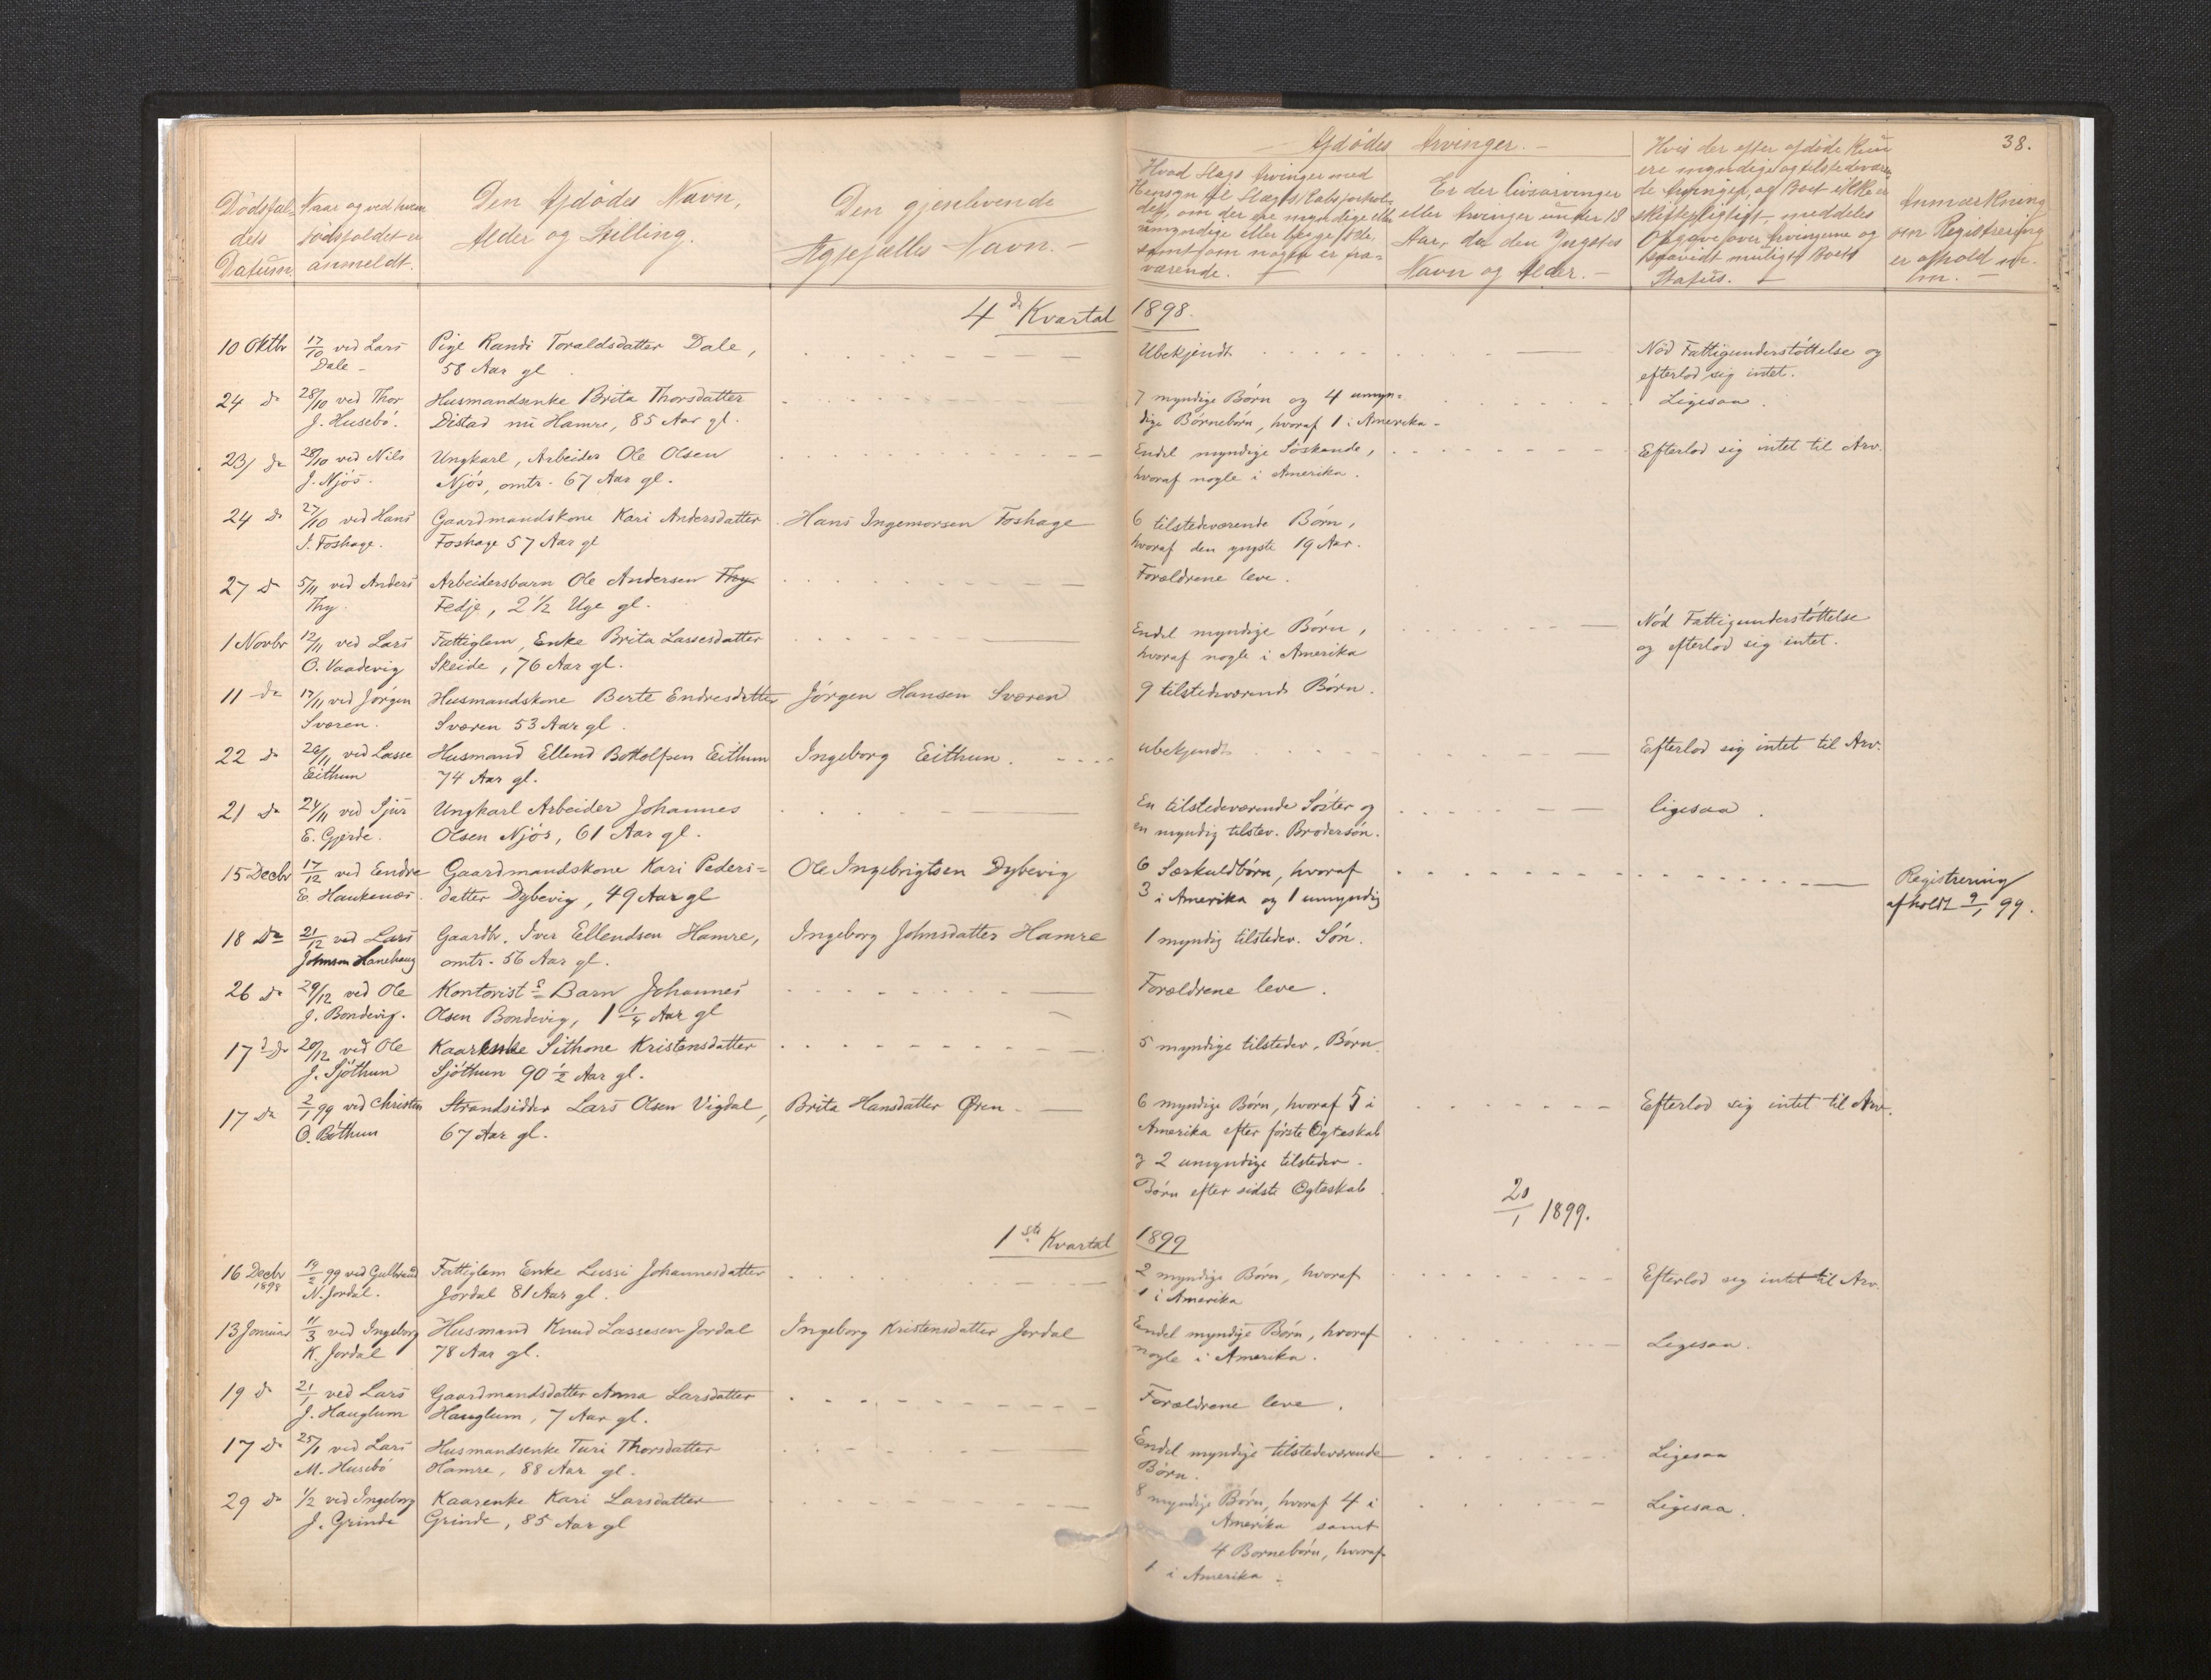 38.
Afdødes Arvinger. -
Dødsfal-
dets
Datum.
Naar og ved hvem
Dødsfaldet er
anmeldt.
Den Afdødes Navn,
Alder og Stilling.
Den gjenlevende
Ægtefælles Navn. -
Hvad Slags Arvinger med
Hensyn til Slægtskabsforhol-
det, om der ere myndige eller
umyndige eller begge Dele,
samt om nogen er fra-
værende.
Er der Livsarvinger
eller Arvinger under 18
Aar, da den Yngstes
Navn og Alder. -
Hvis der efter afdøde kun
ere myndige og tilstedeværen
de Arvinger, og Boet ikke er
skiftepligtigt, meddeles
Opgave over Arvingerne og
saavidt muligt Boets
Status.
Anmærkning
om Registrering
er afhold m.
m. -
4de Kvartal 1898.
10 Oktbr 17/10 ved Lars Pige Randi Toraldsdatter Dale, Ubekjendt Nød Fattigunderstøttelse og
Dale - 58 Aar gl efterlod sig intet.
24 do 28/10 ved Thor Husmandsenke Brita Thorsdatter 7 myndige Børn og 4 umyn- Ligesaa.
J. Husebø. Distad nu Hamre, 85 Aar gl. dige Børnebørn, hvoraf 1 i Amerika -
23/ do 28/10 ved Nils Ungkarl, Arbeider Ole Olsen Endel myndige Søskende, Efterlod sig intet til Arv.
J. Njøs. Njøs, omtr. 67 Aar gl. hvoraf nogle i Amerika.
24 do 27/10 ved Hans Gaardmandskone Kari Andersdatter Hans Ingemorsen Foshage 6 tilstedeværende Børn,
I. Foshage. Foshage 57 Aar gl hvoraf den yngste 19 Aar.
27 do 5/11 ved Anders Arbeidersbarn Ole Andersen Thy Forældrene leve.
Thy. Fedje, 2 1/2 Uge gl.
1 Novbr 12/11 ved Lars Fattiglem, Enke Brita Lassesdatter Endel myndige Børn, Nød Fattigunderstøttelse
O. Vaadevig Skeide, 76 Aar gl. hvoraf nogle i Amerika og efterlod sig intet.
11 do 17/11 ved Jørgen Husmandskone Berte Endresdatter Jørgen Hansen Sværen 9 tilstedeværende Børn.
Sværen. Sværen 53 Aar gl.
22 do 26/11 ved Lasse Husmand Ellend Botholfsen Eithum Ingeborg Eithun. ubekjendt Efterlod sig intet til Arv.
Eithum 74 Aar gl.
21 do 24/11 ved Sjur Ungkarl Arbeider Johannes En tilstedeværende Søster og ligesaa.
E. Gjerde. Olsen Njøs, 61 Aar gl. en myndig tilstev. Brodersøn.
15 Decbr 17/12 ved Endre Gaardmandskone Kari Peders- Ole Ingebrigtsen Dybevig 6 Særkuldbørn, hvoraf Registrering
E. Haukenæs. datter Dybevig, 49 Aar gl 3 i Amerika og 1 umyndig afholdt 9/1 99.
18 Do 21/12 ved Lars Gaardbr. Iver Ellendsen Hamre, Ingeborg Johnsdatter Hamre 1 myndig tilstedev. Søn.
Johnson Hanehaug omtr. 56 Aar gl.
26 do 29/12 ved Ole Kontorists Barn Johannes Forældrene leve.
J. Bondevig. Olsen Bondevig, 1 1/4 Aar gl
17 do 20/12 ved Ole Kaarenke Sithone Kristensdatter 5 myndige tilstedev. Børn.
J. Sjøthun Sjøthun 90 1/2 Aar gl.
17 do 2/1 99 ved Christen Strandsidder Lars Olsen Vigdal, Brita Hansdatter Øren - 6 myndige Børn, hvoraf 5 i Efterlod sig intet til Arv.
O. Bøthun 67 Aar gl. Amerika efter første Ægteskab
og 2 umyndige tilstedev.
Børn efter sidste Ægteskab
20/1 1899.
1ste Kvartal 1899
16 Decbr 19/2 99 ved Gulbrand Fattiglem Enke Lussi Johannesdatter 2 myndige Børn, hvoraf Efterlod sig intet til Arv.
1898 N. Jordal. Jordal 81 Aar gl. 1 i Amerika
13 Januar 11/3 ved Ingeborg Husmand Knud Lassesen Jordal Ingeborg Kristensdatter Jordal Endel myndige Børn, hvoraf Ligesaa.
K. Jordal 78 Aar gl. nogle i Amerika.
19 do 21/1 ved Lars Gaardmandsdatter Anna Larsdatter Forældrene leve.
J. Hauglum Hauglum, 7 Aar gl.
17 do 25/1 ved Lars Husmandsenke Turi Thorsdatter Endel myndige tilstedeværende Ligesaa
M. Husebø Hamre, 88 Aar gl. Børn.
29 do 1/2 ved Ingeborg Kaarenke Kari Larsdatter 8 myndige Børn, hvoraf 4 i Ligesaa.
J. Grinde Grinde, 85 Aar gl Amerika samt
4 Børnebørn, hvoraf
1 i Amerika -